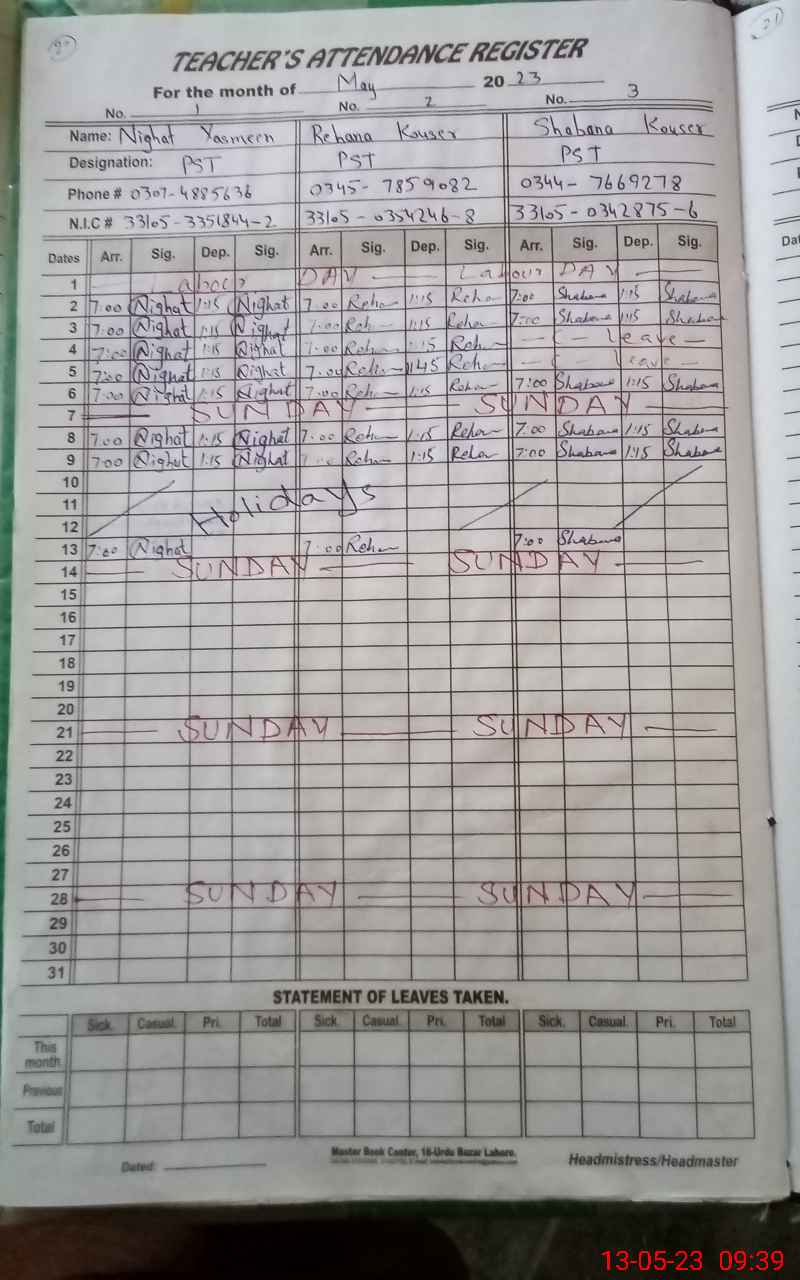 90
21
TEACHER'S ATTENDANCE REGISTER
For the month of May 2023
No. 1 No. 2 No. 3
Name: Nighat Yasmeen Rehana Kouser Shabana Kouser
Designation: PST PST PST
Phone # 0307-4885636 0345-7859082 0344-7669278
N.I.C # 33105-3351844-2 33105-0354246-8 33105-0342875-6
Dates Arr. Sig. Dep. Sig. Arr. Sig. Dep. Sig. Arr. Sig. Dep. Sig.
1 Labour DAY Labour DAY
2 7:00 Nighat 1:15 Nighat 7:00 Reha 1:15 Reha 7:00 Shabana 1:15 Shabana
3 7:00 Nighat 1:15 Nighat 7:00 Reh 1:15 Reha 7:00 Shabana 1:15 Shabana
4 7:00 Nighat 1:15 Nighat 7:00 Reha 1:15 Reh Leave
5 7:00 Nighat 1:15 Nighat 7:00 Reh 1145 Reha Leave
6 7:00 Nighat 1:15 Nighat 7:00 Reh 1:15 Reha 7:00 Shabana 1:15 Shabana
7 SUNDAY SUNDAY
8 7:00 Nighat 1:15 Nighat 7:00 Reha 1:15 Reha 7:00 Shabana 1:15 Shabana
9 7:00 Nighat 1:15 Nighat Reha 1:15 Reha 7:00 Shabana 1:15 Shabana
10
11 Holidays
12
13 7:00 Nighat 7:00 Reha 7:00 Shabana
14 SUNDAY SUNDAY
15
16
17
18
19
20
21 SUNDAY SUNDAY
22
23
24
25
26
27
28 SUNDAY SUNDAY
29
30
31
STATEMENT OF LEAVES TAKEN.
Sick. Casual. Pri. Total Sick. Casual. Pri. Total Sick. Casual. Pri. Total
This month
Previous
Total
Dated:
Master Book Center, 16-Urdu Bazar Lahore.
Headmistress/Headmaster
13-05-23 09:39